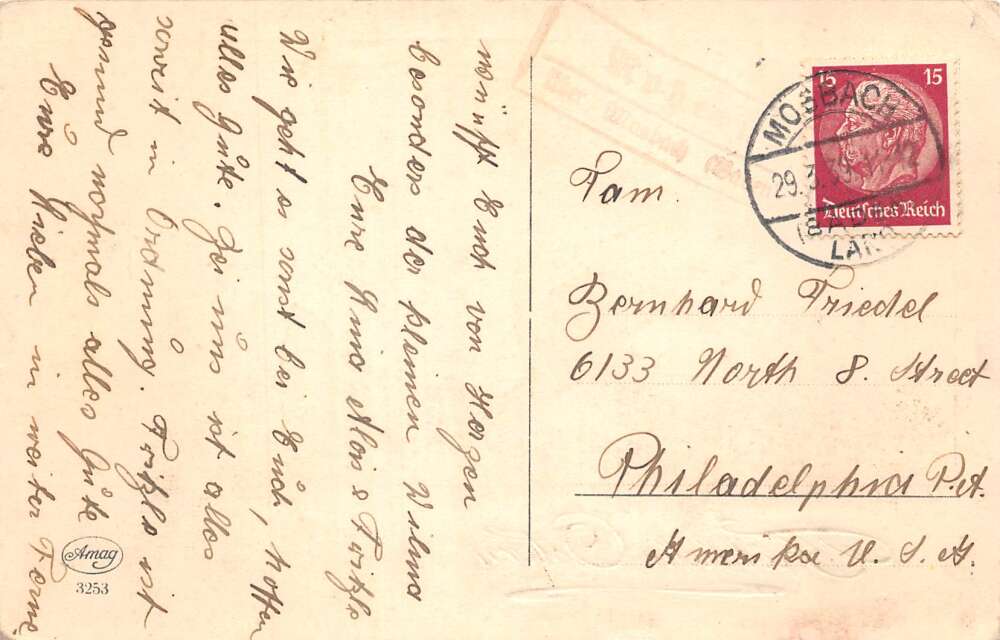 wünscht Euch von Herzen
besonders der kleinen Wilma
Eure Alois & Fritzle
Wie geht es sonst bei Euch, hoffen
alles Gute. Bei uns ist alles
soweit in Ordnung. Fritzle ist
gesund nochmals alles Gute
Eure Lieben in weiter Ferne
Amag
3253
15 15
Deutsches Reich
MOSBACH
29.3.39
(BADEN)
LAND
Fam.
Bernhard Friedel
6133 North 8. Street
Philadelphia P.A.
Amerika U.S.A.